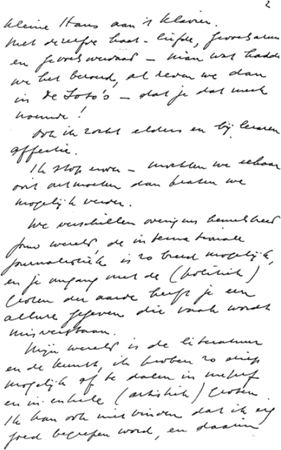 2
kleine Hans aan 't klavier.
Met dezelfde haat-liefde, gevoelsarm
en gevoelvol — maar wat hadden
we het benauwd, al reden we dan
in de foto's — dat je dat merk
noemde!
Ook ik zocht elders en bij leraren
affectie.
Ik stop even — mochten we elkaar
ooit ontmoeten dan praten we
mogelijk verder.
We verschillen overigens hemelsbreed
jouw wereld, de internationale
journalistiek is zo breed mogelijk,
en je omgang met de (politiek)
Groten der aarde heeft je een
allure gegeven die vaak wordt
misverstaan.
Mijn wereld is de literatuur
en de kunst, ik probeer zo diep
mogelijk af te dalen in mezelf
en in enkele (artistiek) Groten.
Ik kan ook niet vinden dat ik erg
goed begrepen word, en daarin